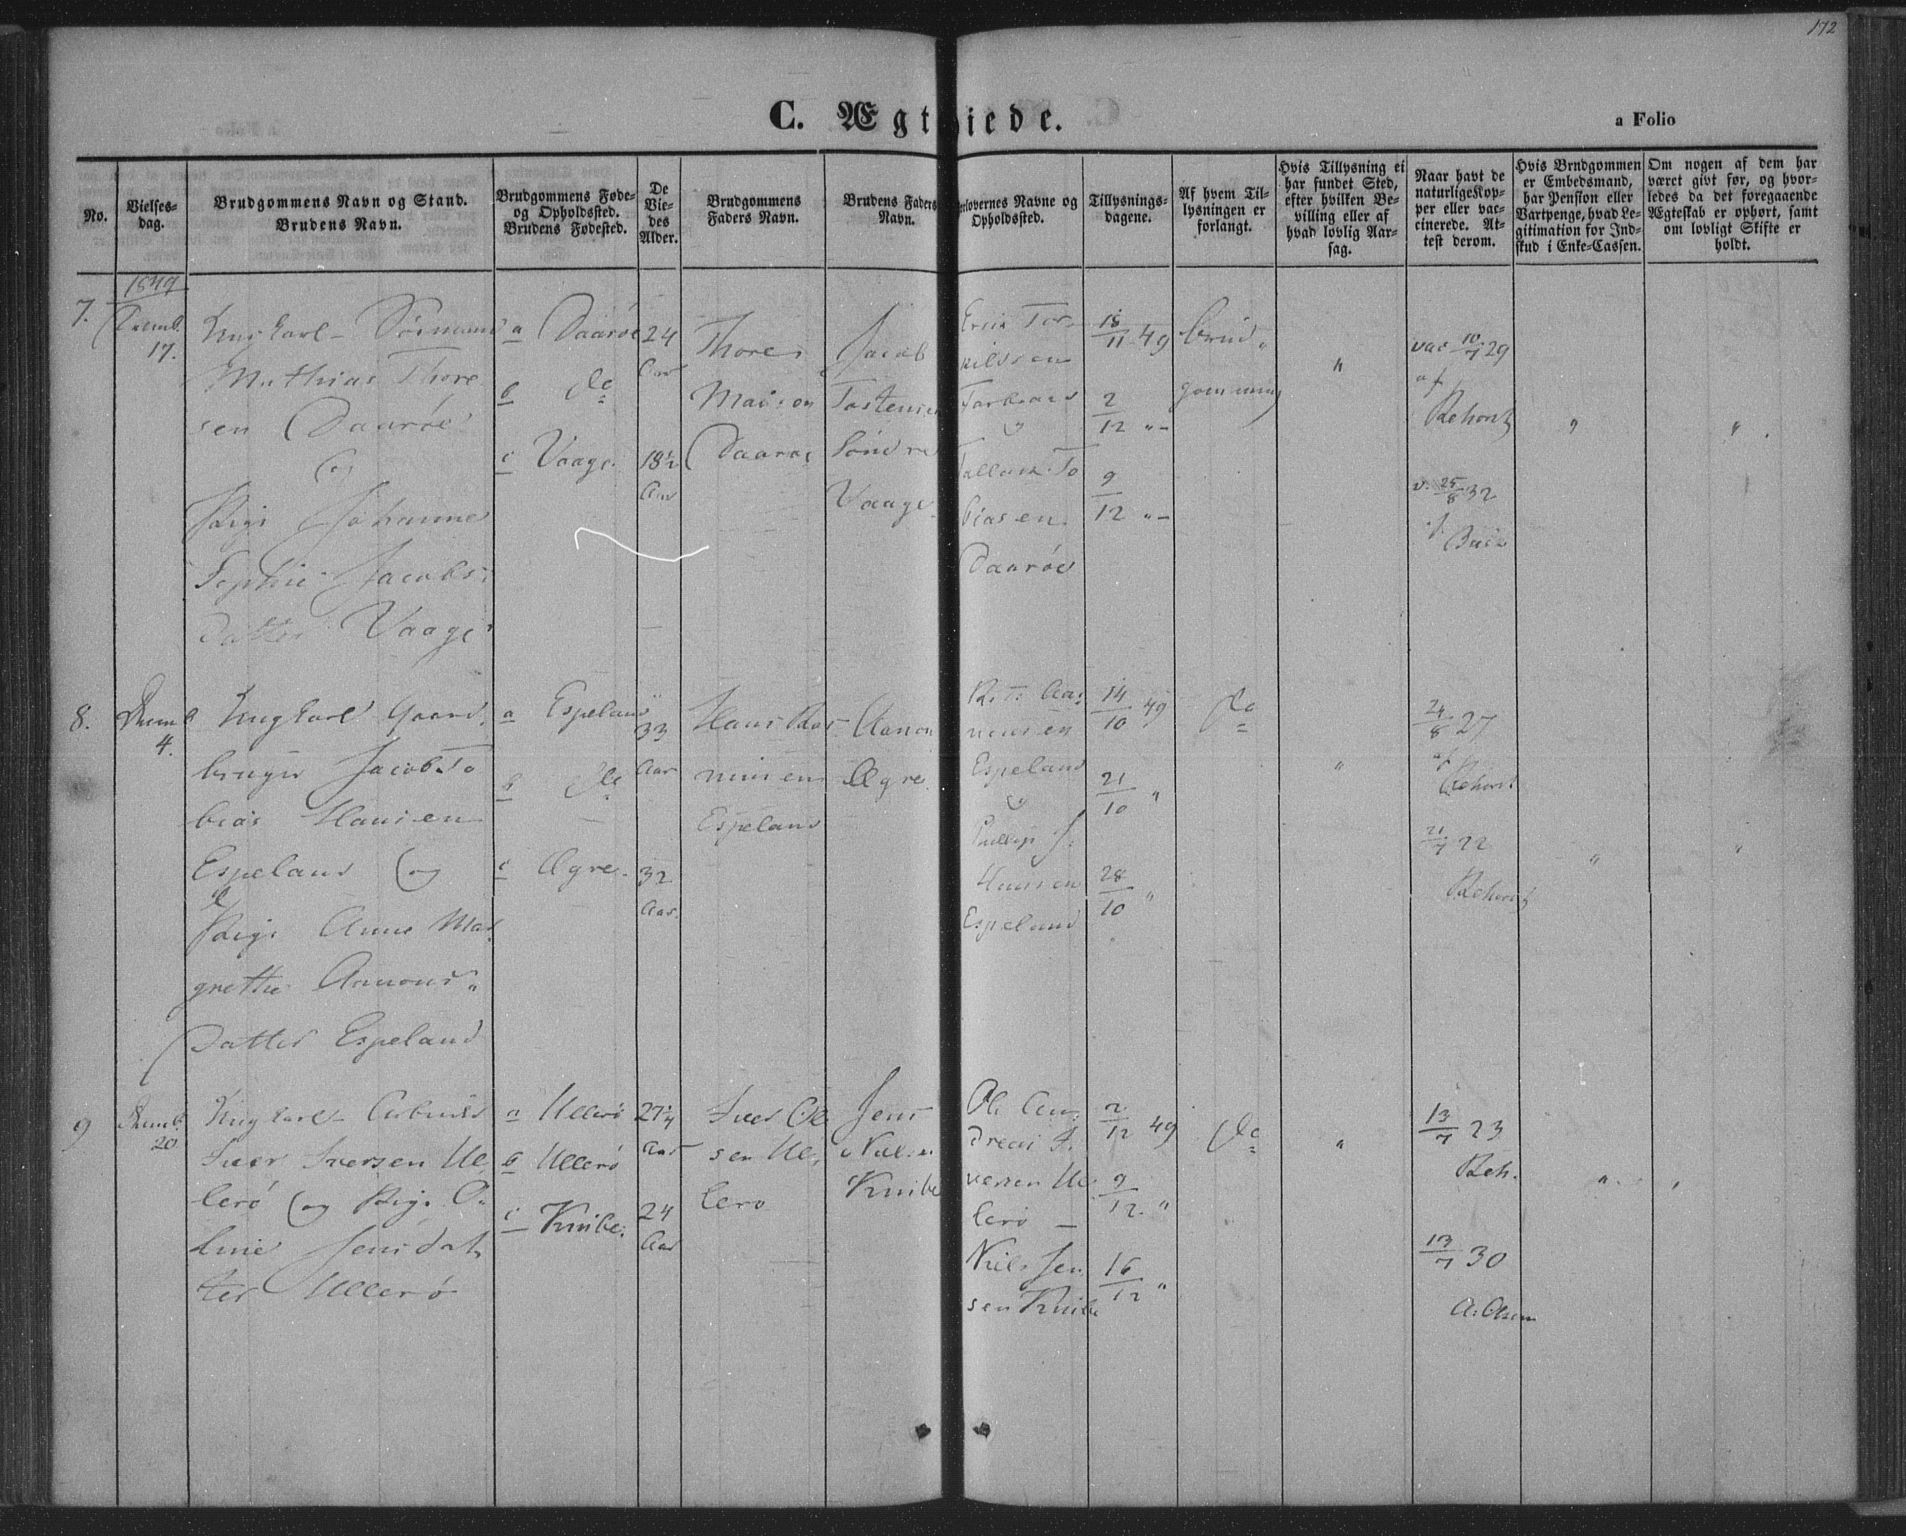 172
C. Ægtviede.
a Folio
No.
Vielses-
dag.
Brudgommens Navn og Stand.
Brudens Navn.
Brudgommens Føde-
og Opholdssted.
Brudens Fødested.
De
Vie-
des
Alder.
Brudgommens
Faders Navn.
Brudens Faders
Navn.
Forlovernes Navne og
Opholdssted.
Tillysnings-
dagene.
Af hvem Til-
lysningen er
forlangt.
Hvis Tillysning ei
har fundet Sted,
efter hvilken Be-
villing eller af
hvad lovlig Aar-
sag.
Naar havt de
naturlige Kop-
per eller vac-
cinerede. At-
test derom.
Hvis Brudgommen
er Embedsmand,
har Pension eller
Vartpenge, hvad Le-
gitimation for Ind-
skud i Enke-Cassen.
Om nogen af dem har
været givt før, og hvor-
ledes da det foregaaende
Ægteskab er ophørt, samt
om lovligt Skifte er
holdt.
1849
7.
Decemb.
17.
Ungkarl Sømand
Mathias Thore
sen Daarøe
og
Pige Johanne
Sophie Jacobs
datter Vaage
a Daarøe
b do
c Vaage
24
Aar
18½
Aar
Thore
Daarøe
Jacob
Tostensen
Søndre
Vaage
Tallak To
biasen
Daarøe
18/11 49
2/12 "
9/12 "
Brud
gommen
"
vac 10/7 29
af
Rehorst
v. 25/8 32
af
"
"
8.
Decemb
4.
Ungkarl Gaard
bruger Jacob To
bias Hansen
Espeland og
Pige Anne Mar
grethe Aanons
Datter Espeland
a Espeland
b do
c Øgre
33
Aar
32
Aar
Hans Ras
mussen
Espeland
Aanon
Øgre
Espeland
Hansen
Espeland
14/10 49
21/10 "
28/10 "
do
"
24/8 27
af
Rehorst
21/7 22
Rehorst
"
"
9
Decemb.
20
Ungkarl Arbeider
Iver Iversen Ul
lerø og Pige O
line Jensdat
ter Ullerø
a Ullerø
b Ullerø
c Knibe
27¼
Aar
24
Aar
Iver Ol
sen Ul
lerø
Jens
Nielsen
Knibe
Ole An
dreas I
versen Ul
lerø
Niels Jen
sen Knibe
2/12 49
9/12 "
16/12 "
do
"
13/7 23
Reh.
13/7 30
A. Olsen
"